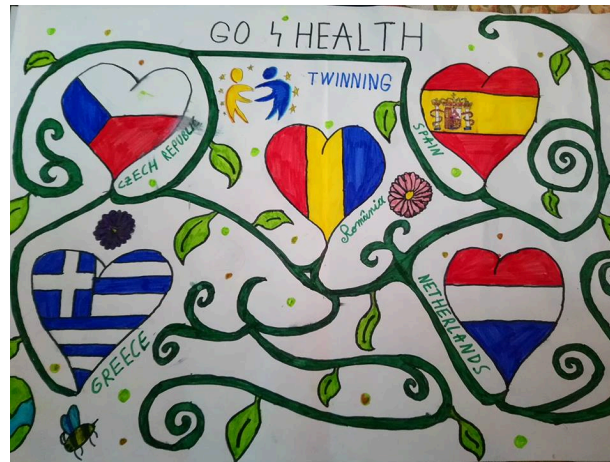 GO 4 HEALTH
TWINNING
CZECH REPUBLIC
SPAIN
România
GREECE
NETHERLANDS